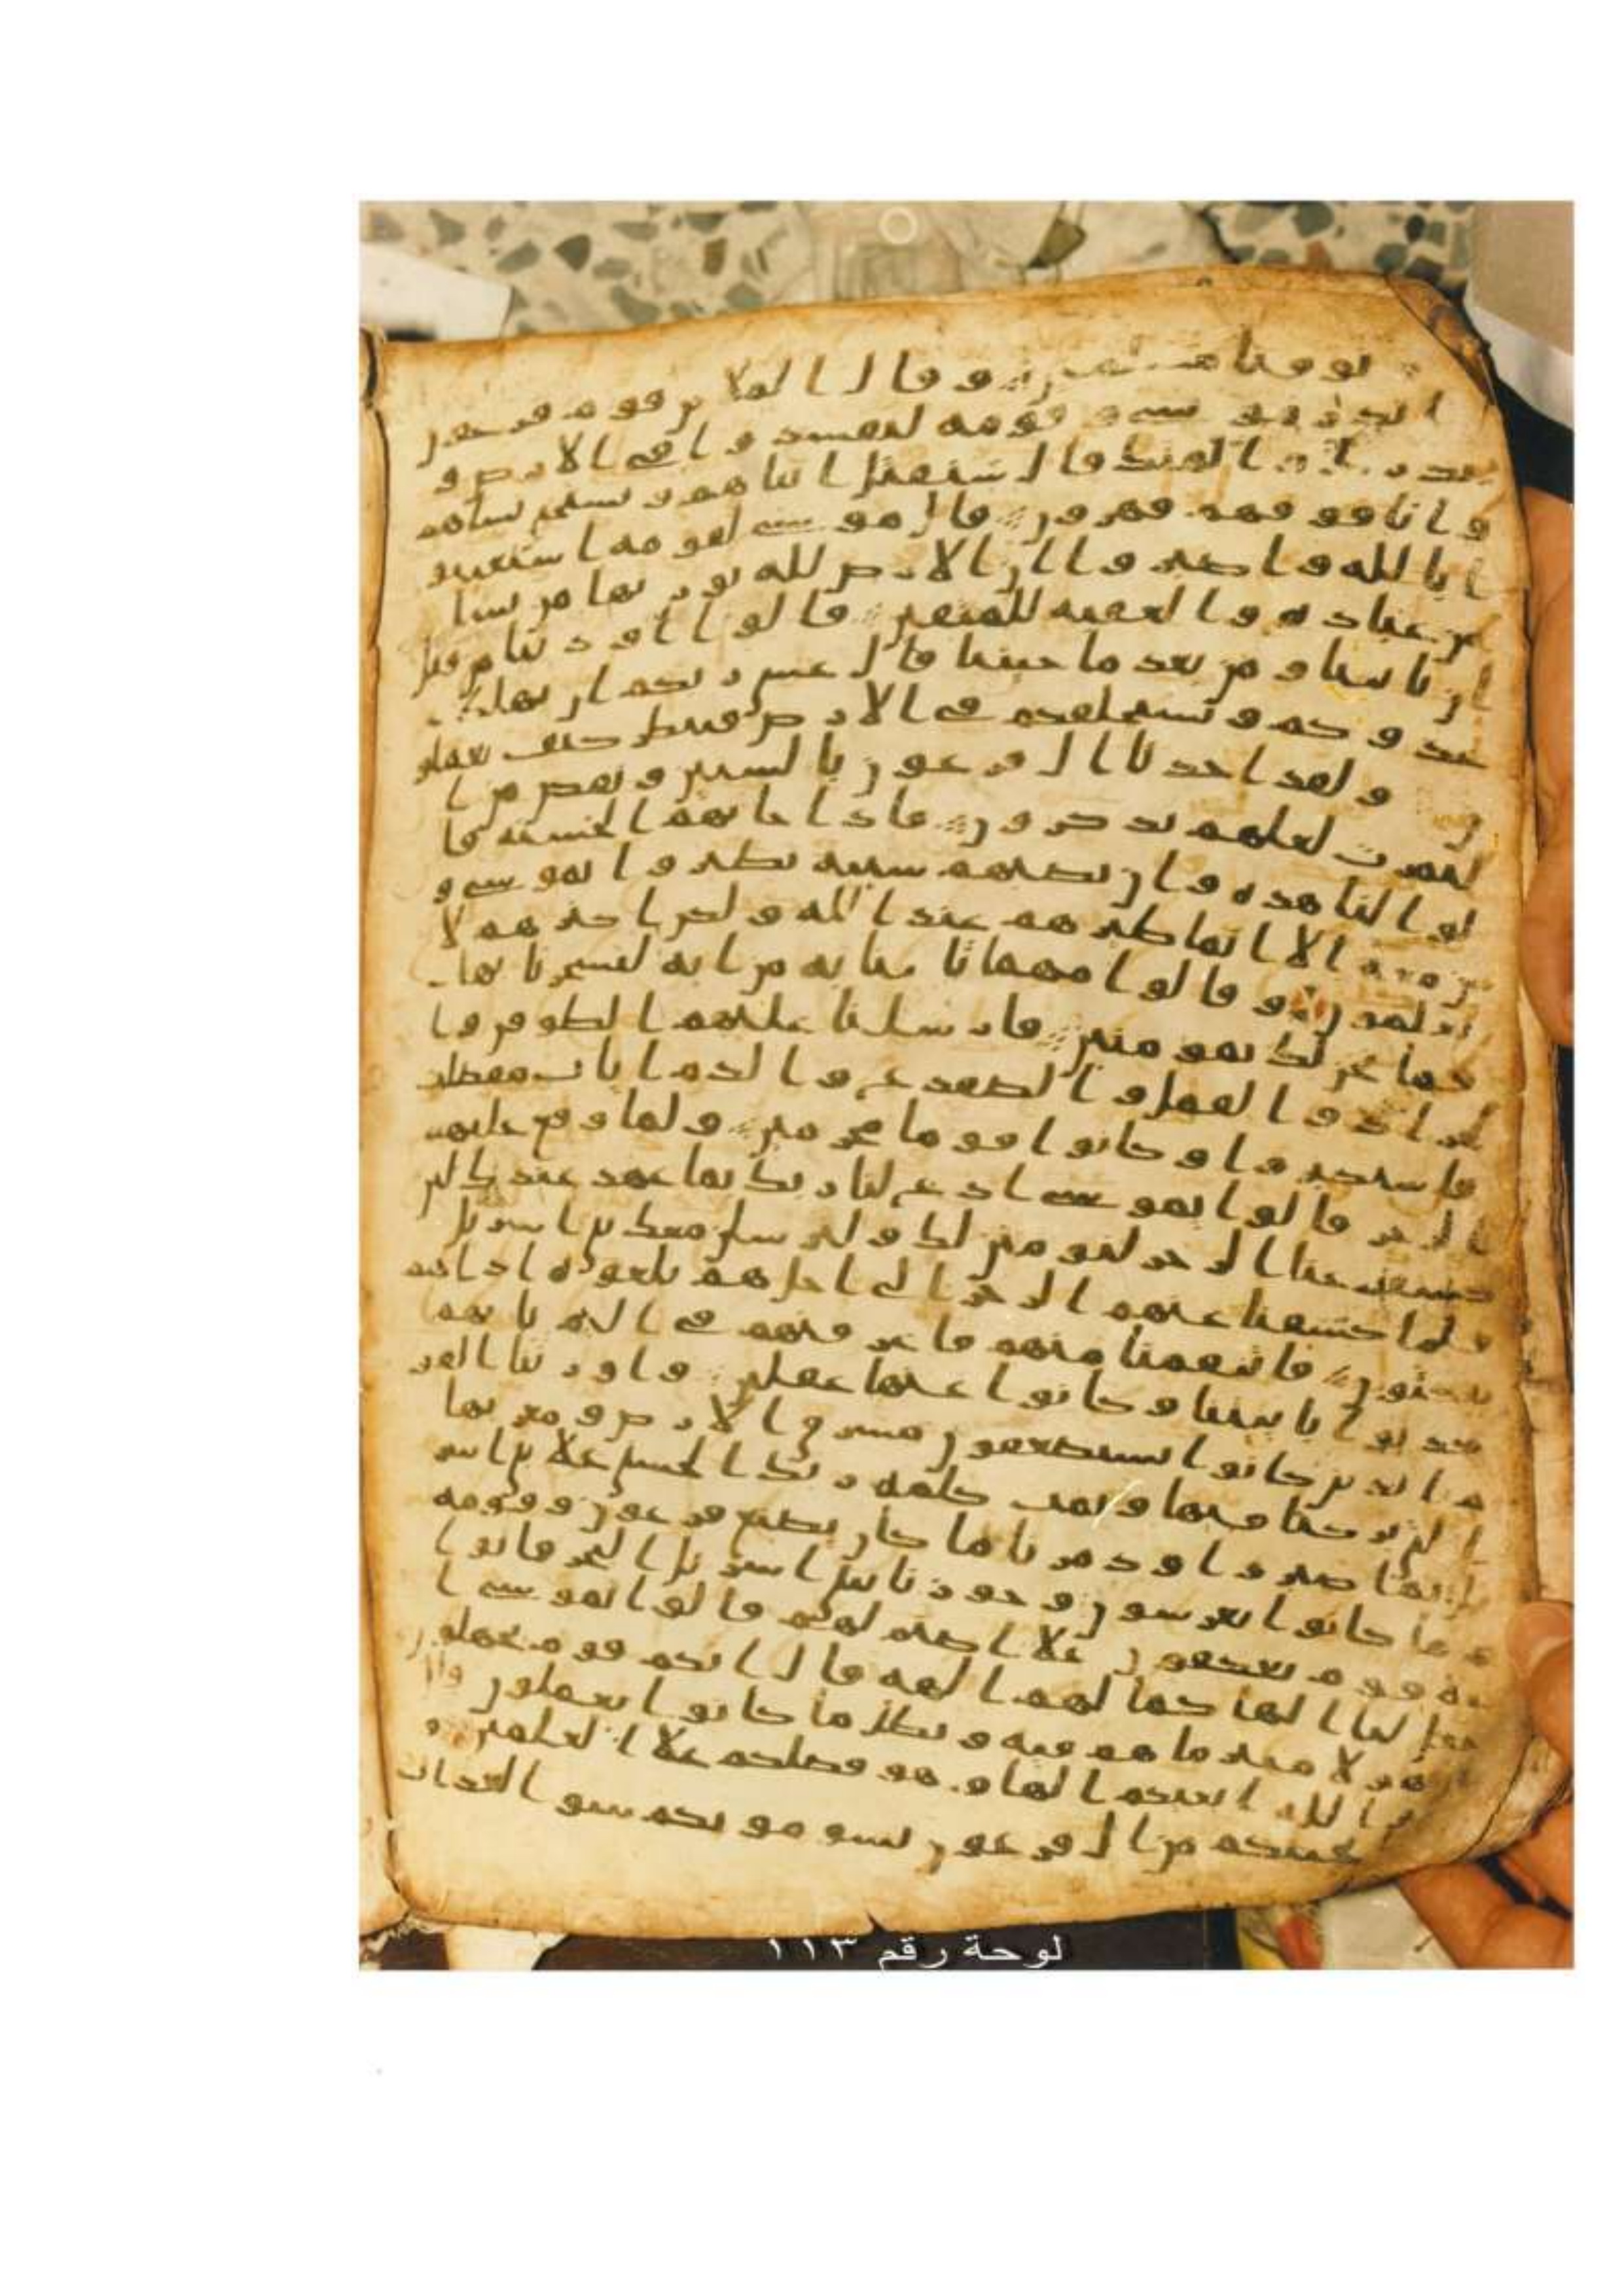 توفنا مسلمين وقال الملا من قوم فرعون
اتذر موسى وقومه ليفسدوا في الارض و
يذرك والهتك قال سنقتل ابناهم ونستحيي نساهم
وانا فوقهم قهرون قال موسى لقومه استعينو
ا بالله واصبروا ان الارض لله يورثها من يشا
من عباده والعقبة للمتقين قالوا اوذينا من قبل
ان تاتينا ومن بعد ما جيتنا قال عسى ربكم ان يهلك
عدوكم ويستخلفكم في الارض فينظر كيف تعملو
ن ولقد اخذنا ال فرعون بالسنين ونقص من ا
لثمرت لعلهم يذكرون فاذا جاتهم الحسنة قا
لوا لنا هذه وان تصبهم سيية يطيروا بموسى و
من معه الا انما طيرهم عند الله ولكن اكثرهم لا
يعلمون وقالوا مهما تاتنا به من اية لتسحرنا بها
فما نحن لك بمومنين فارسلنا عليهم الطوفن وا
لجراد والقمل والضفدع والدم ايات مفصلت
فاستكبروا وكانوا قوما مجرمين ولما وقع عليهم
الرجز قالوا يموسى ادع لنا ربك بما عهد عندك لين
كشفت عنا الرجز لنومنن لك ولنرسلن معك بني اسريل
فلما كشفنا عنهم الرجز الى اجل هم بلغوه اذا هم
ينكثون فانتقمنا منهم فاغرقنهم في اليم بانهم
كذبوا باييتنا وكانوا عنها غفلين واورثنا القو
م الذين كانوا يستضعفون مشرق الارض ومغربها
التي بركنا فيها وتمت كلمة ربك الحسنى علا بني اسر
يل بما صبروا ودمرنا ما كان يصنع فرعون وقومه
وما كانوا يعرشون وجوزنا ببني اسريل البحر فاتوا
على قوم يعكفون علا اصنم لهم قالوا يموسى ا
جعل لنا الها كما لهم الهة قال انكم قوم تجهلون
ان هولا متبر ما هم فيه وبطل ما كانوا يعملون قال
اغير الله ابغيكم الها وهو فضلكم علا العلمين و
اذ انجينكم من ال فرعون يسومونكم سو العذاب
لوحة رقم ١١٣